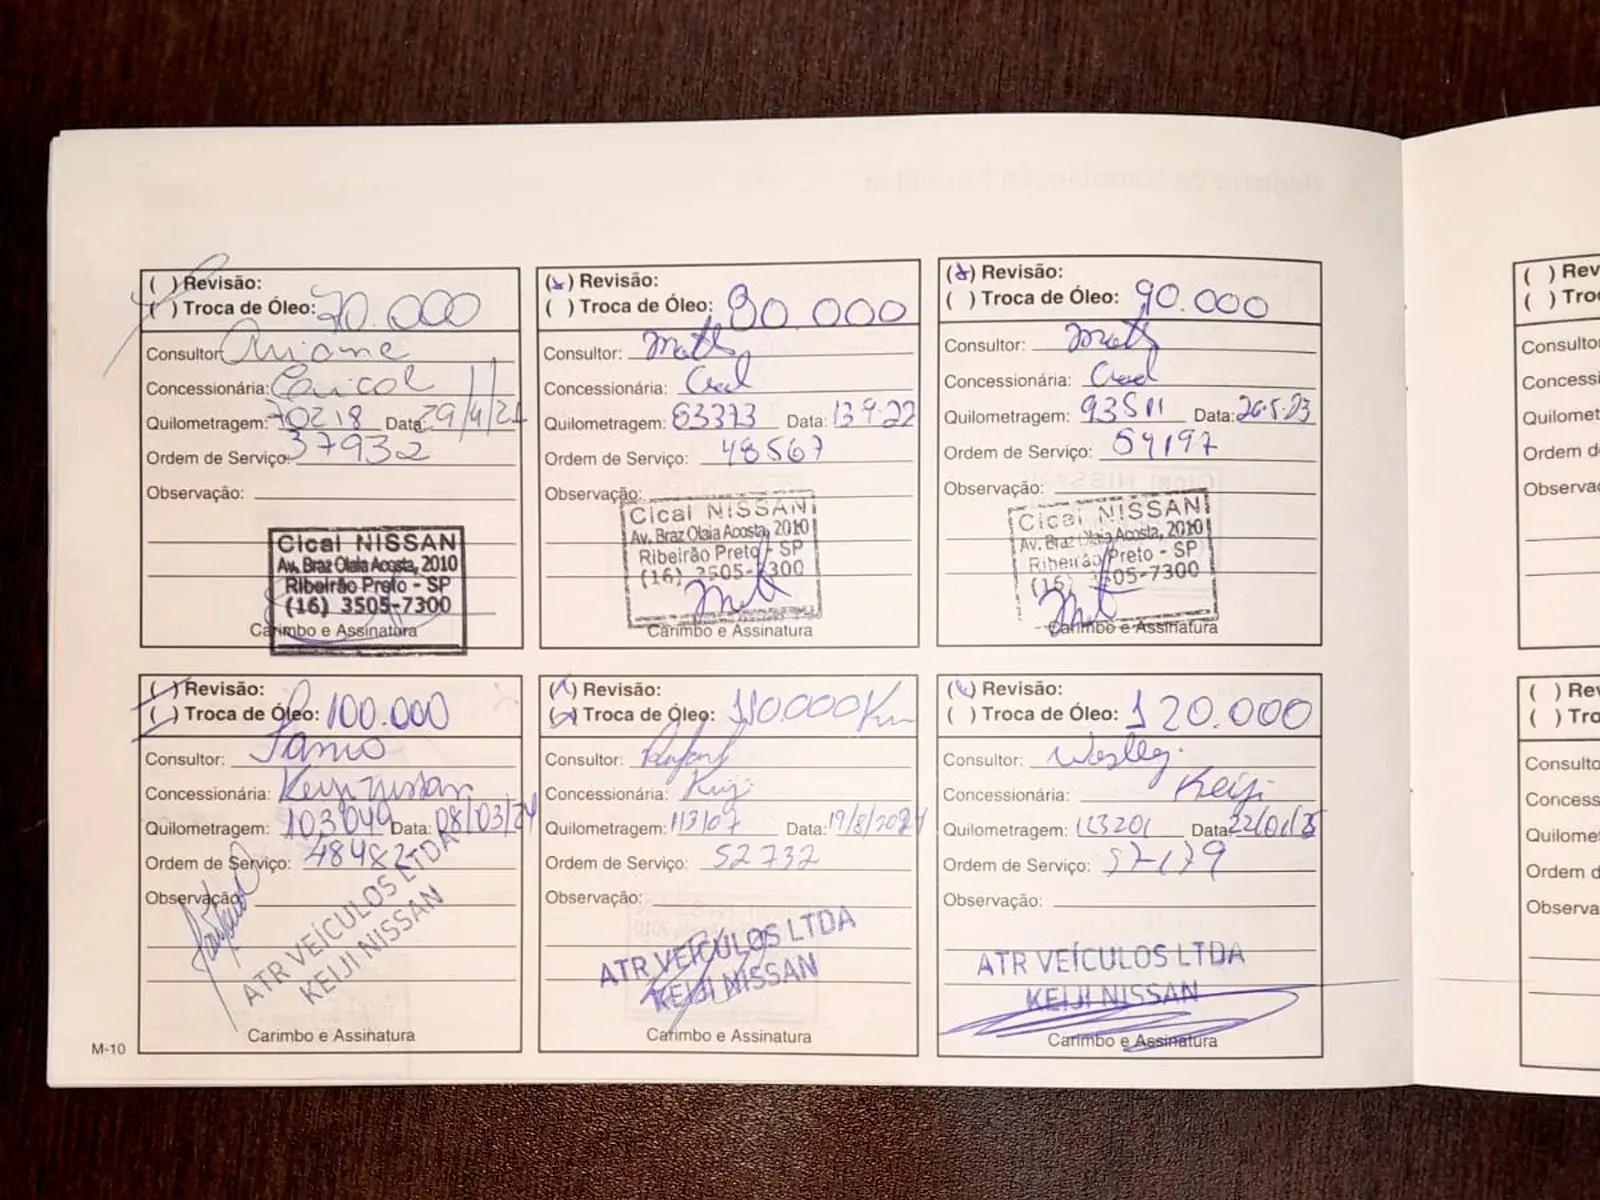 ( ) Revisão:
( ) Troca de Óleo: 70.000
Consultor: Ariane
Concessionária: Cical
Quilometragem: 70218 Data: 29/4/21
Ordem de Serviço: 37932
Observação:
Cical NISSAN
Av. Braz Olaia Acosta, 2010
Ribeirão Preto - SP
(16) 3505-7300
Carimbo e Assinatura
(x) Revisão:
( ) Troca de Óleo: 80 000
Consultor:
Concessionária: Cical
Quilometragem: 83373 Data: 13.9.22
Ordem de Serviço: 48567
Observação:
Cical NISSAN
Av. Braz Olaia Acosta, 2010
Ribeirão Preto - SP
(16) 3505-7300
Carimbo e Assinatura
(x) Revisão:
( ) Troca de Óleo: 90.000
Consultor:
Concessionária: Cical
Quilometragem: 93511 Data: 26.5.23
Ordem de Serviço: 54197
Observação:
Cical NISSAN
Av. Braz Olaia Acosta, 2010
Ribeirão Preto - SP
(16) 3505-7300
Carimbo e Assinatura
( ) Revisão:
( ) Troca de Óleo: 100.000
Consultor:
Concessionária: Keiji Nissan
Quilometragem: 103049 Data: 08/03/24
Ordem de Serviço: 48482
Observação:
ATR VEÍCULOS LTDA
KEIJI NISSAN
Carimbo e Assinatura
(x) Revisão:
(x) Troca de Óleo: 110.000 Km
Consultor:
Concessionária: Keiji
Quilometragem: 113107 Data: 19/8/2024
Ordem de Serviço: 52732
Observação:
ATR VEÍCULOS LTDA
KEIJI NISSAN
Carimbo e Assinatura
(x) Revisão:
( ) Troca de Óleo: 120.000
Consultor: Wesley
Concessionária: Keiji
Quilometragem: 123201 Data: 22/01/25
Ordem de Serviço: 57179
Observação:
ATR VEÍCULOS LTDA
KEIJI NISSAN
Carimbo e Assinatura
M-10
( ) Rev
( ) Tro
Consulto
Concessi
Quilomet
Ordem de
Observaç
( ) Rev
( ) Tro
Consulto
Concess
Quilome
Ordem d
Observa